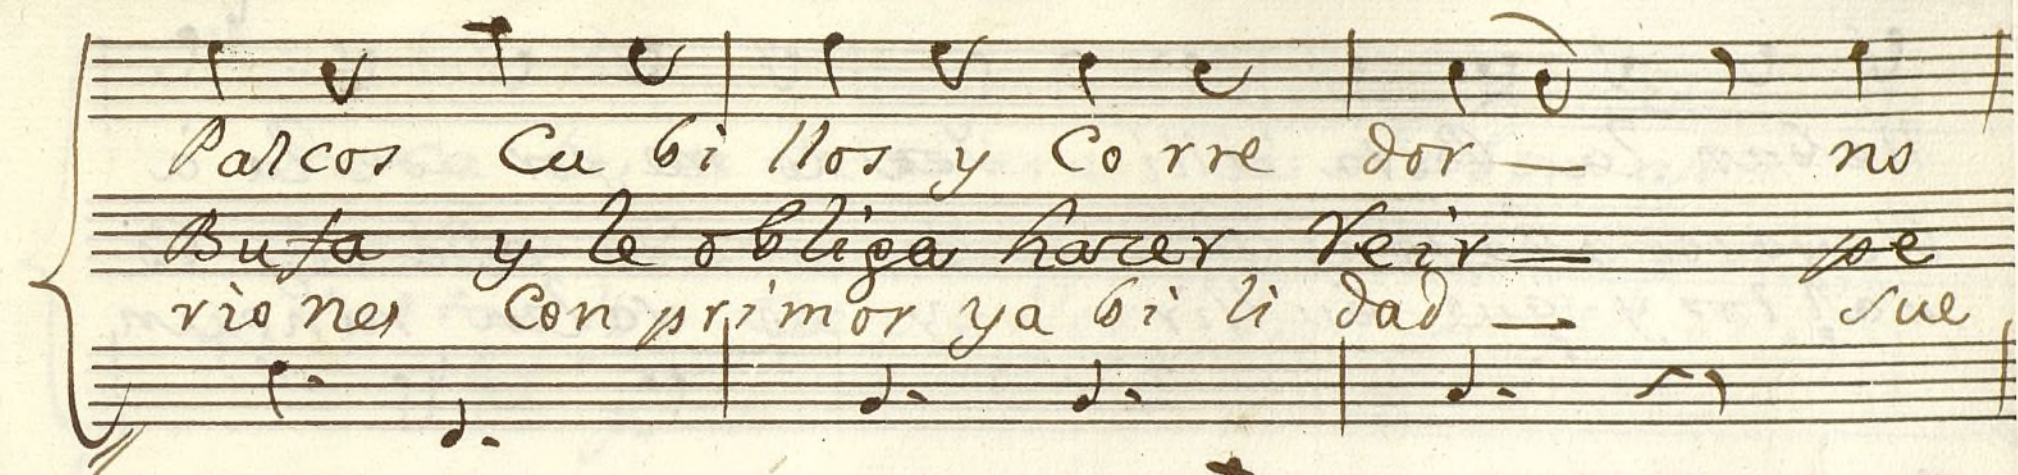 Palcos Cu bi llos y Co rre dor — no
Bufa y le obliga hacer Reir — pe
rio nes Con primor ya bi li dad — sue